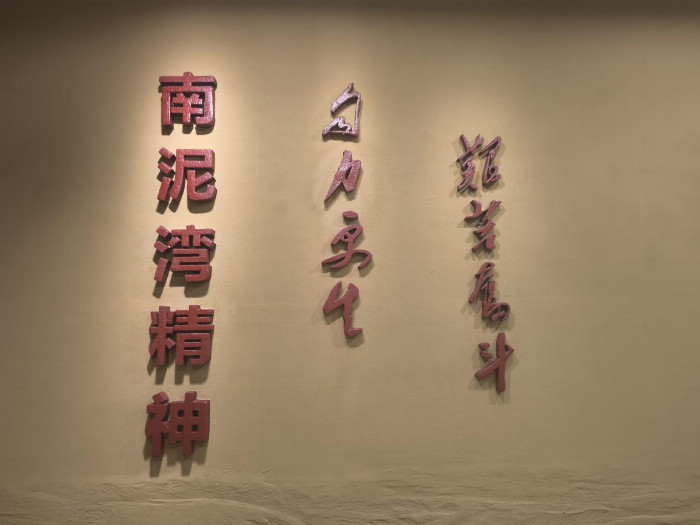 南泥湾精神
自力更生
艰苦奋斗